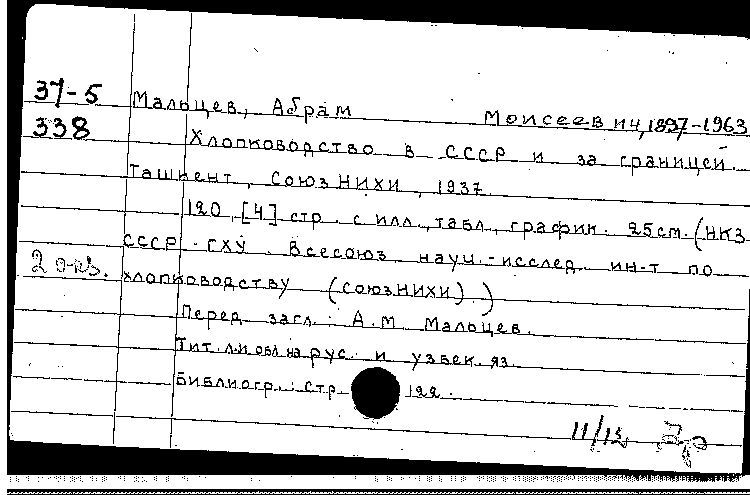 37-5 Мальцев, Абрам Моисеевич, 1897-1963
338 Хлопководство в СССР и за границей.
Ташкент, СоюзНИХИ, 1937.
120, [4] стр. с илл., табл., график. 25см. (НКЗ
СССР - ГХУ. Всесоюз. науч.-исслед. ин-т по
2 экз. хлопководству (СоюзНИХИ).)
Перед загл.: А.М. Мальцев.
Тит. л. и обл. на рус. и узбек. яз.
Библиогр.: стр. 122.
11/IV